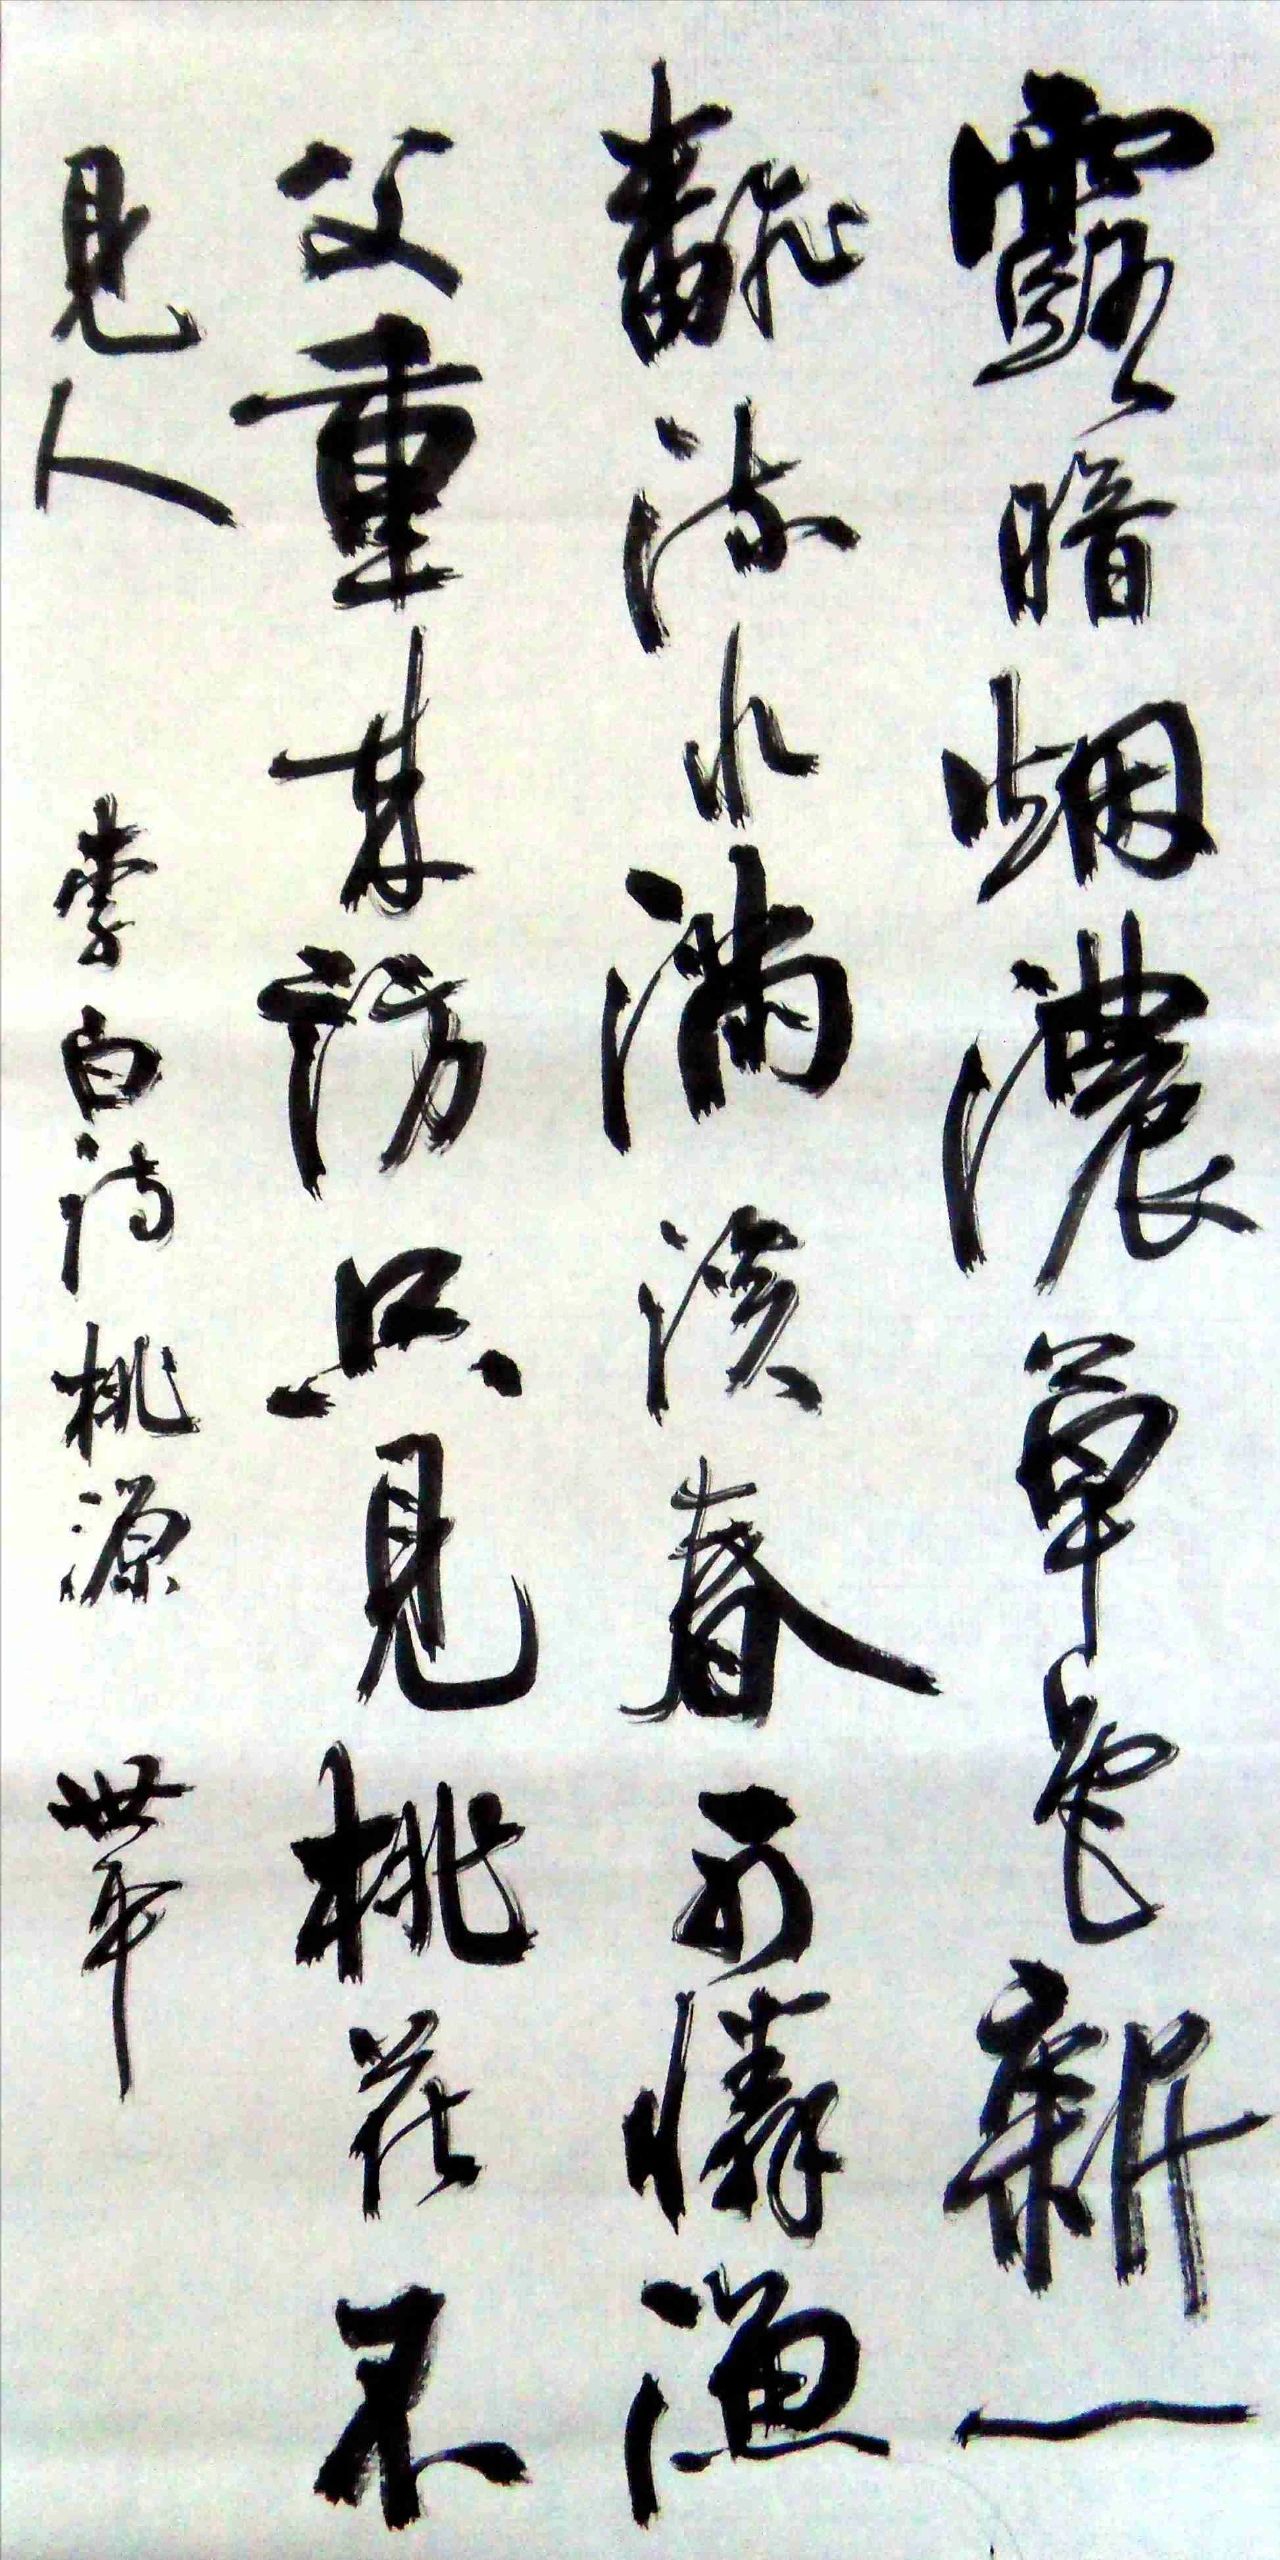 露暗烟濃草色新一
飜流水滿溪春可憐漁
父重来訪只見桃花不
見人
李白詩桃源 世